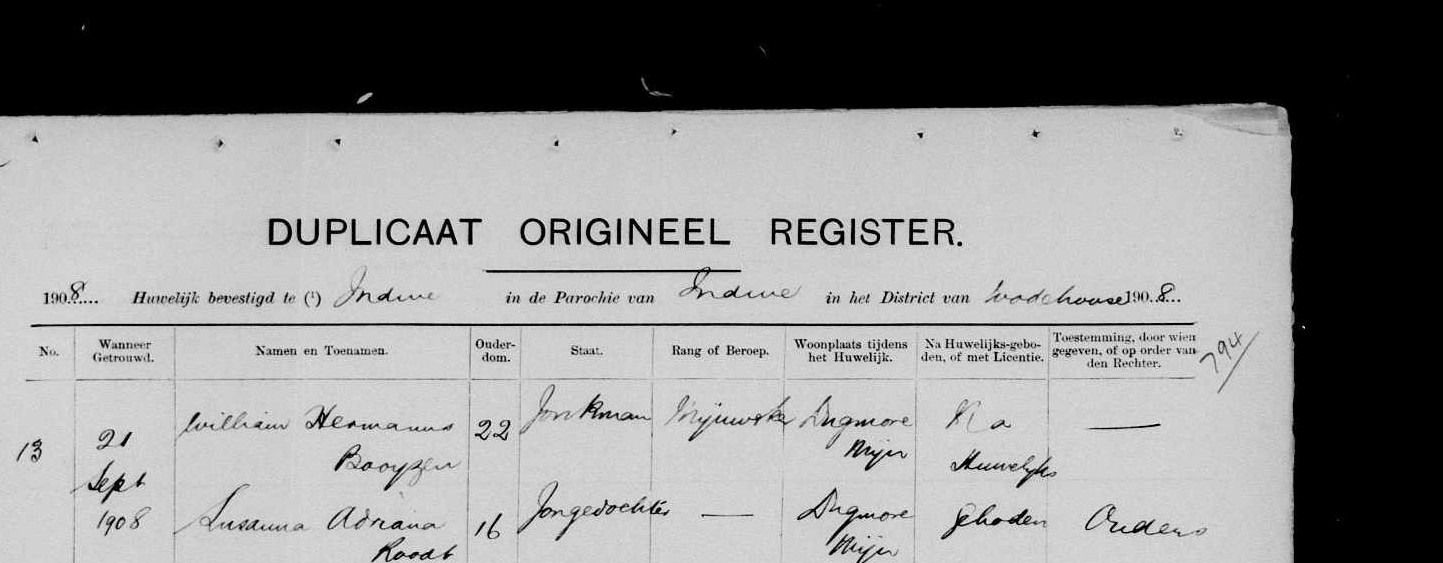 DUPLICAAT ORIGINEEL REGISTER.
1908 Huwelijk bevestigd te (¹) Indwe in de Parochie van Indwe in het District van Wodehouse 1908
No. Wanneer Getrouwd. Namen en Toenamen. Ouder-dom. Staat. Rang of Beroep. Woonplaats tijdens het Huwelijk. Na Huwelijks-gebo-den, of met Licentie. Toestemming, door wien gegeven, of op order van den Rechter.
794/
13 21 William Hermanus 22 Jonkman Dugmore Na —
Sept Booyzen Mijn Huwelyks
1908 Susanna Adriana 16 Jongedochter — Dugmore Geboden Ouders
Roodt Mijn